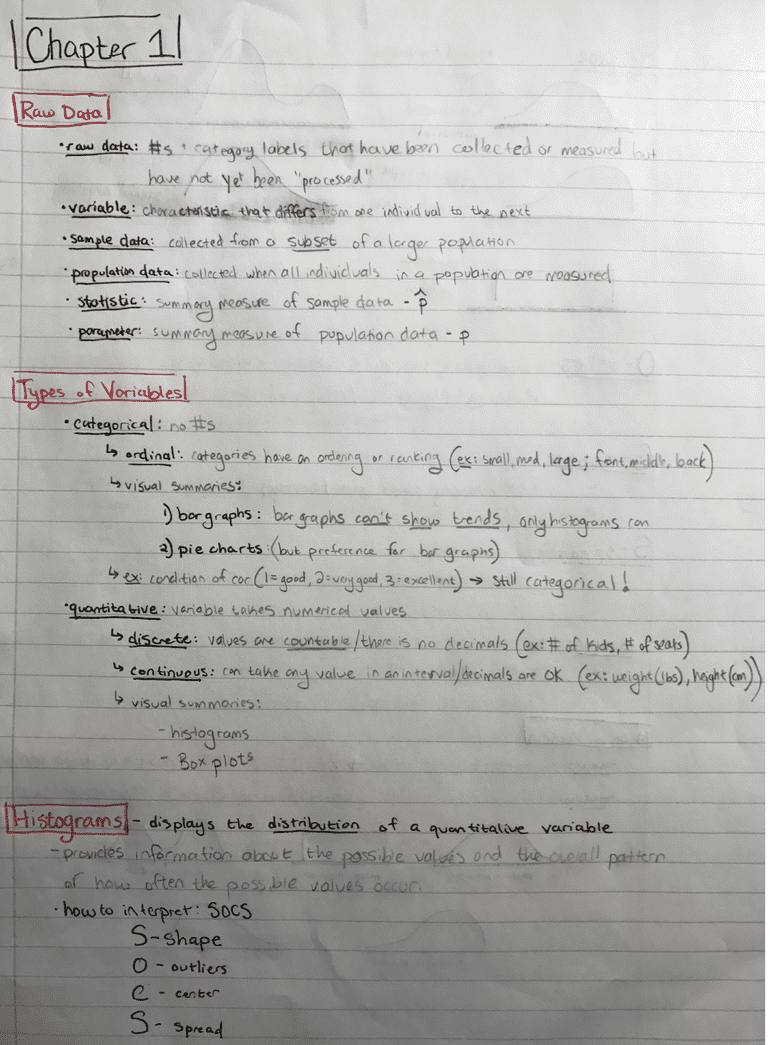 Chapter 1
Raw Data
• raw data: #s + category labels that have been collected or measured but
have not yet been "processed"
• variable: characteristic that differs from one individual to the next
• sample data: collected from a subset of a larger population
• propulation data: collected when all individuals in a population are measured
• statistic: summary measure of sample data - p̂
• parameter: summary measure of population data - p
Types of Variables
• categorical: no #s
↳ ordinal: categories have an ordering or ranking (ex: small, med, large; font, middle, back)
↳ visual summaries:
1) bar graphs: bar graphs can't show trends, only histograms can
2) pie charts: (but preference for bar graphs)
↳ ex: condition of car (1=good, 2=very good, 3=excellent) → still categorical!
• quantitative: variable takes numerical values
↳ discrete: values are countable/there is no decimals (ex: # of kids, # of seats)
↳ continuous: can take any value in an interval/decimals are OK (ex: weight (lbs), height (cm))
↳ visual summaries:
- histograms
- Box plots
Histograms - displays the distribution of a quantitative variable
- provides information about the possible values and the overall pattern
of how often the possible values occur.
• how to interpret: SOCS
S - shape
O - outliers
C - center
S - spread